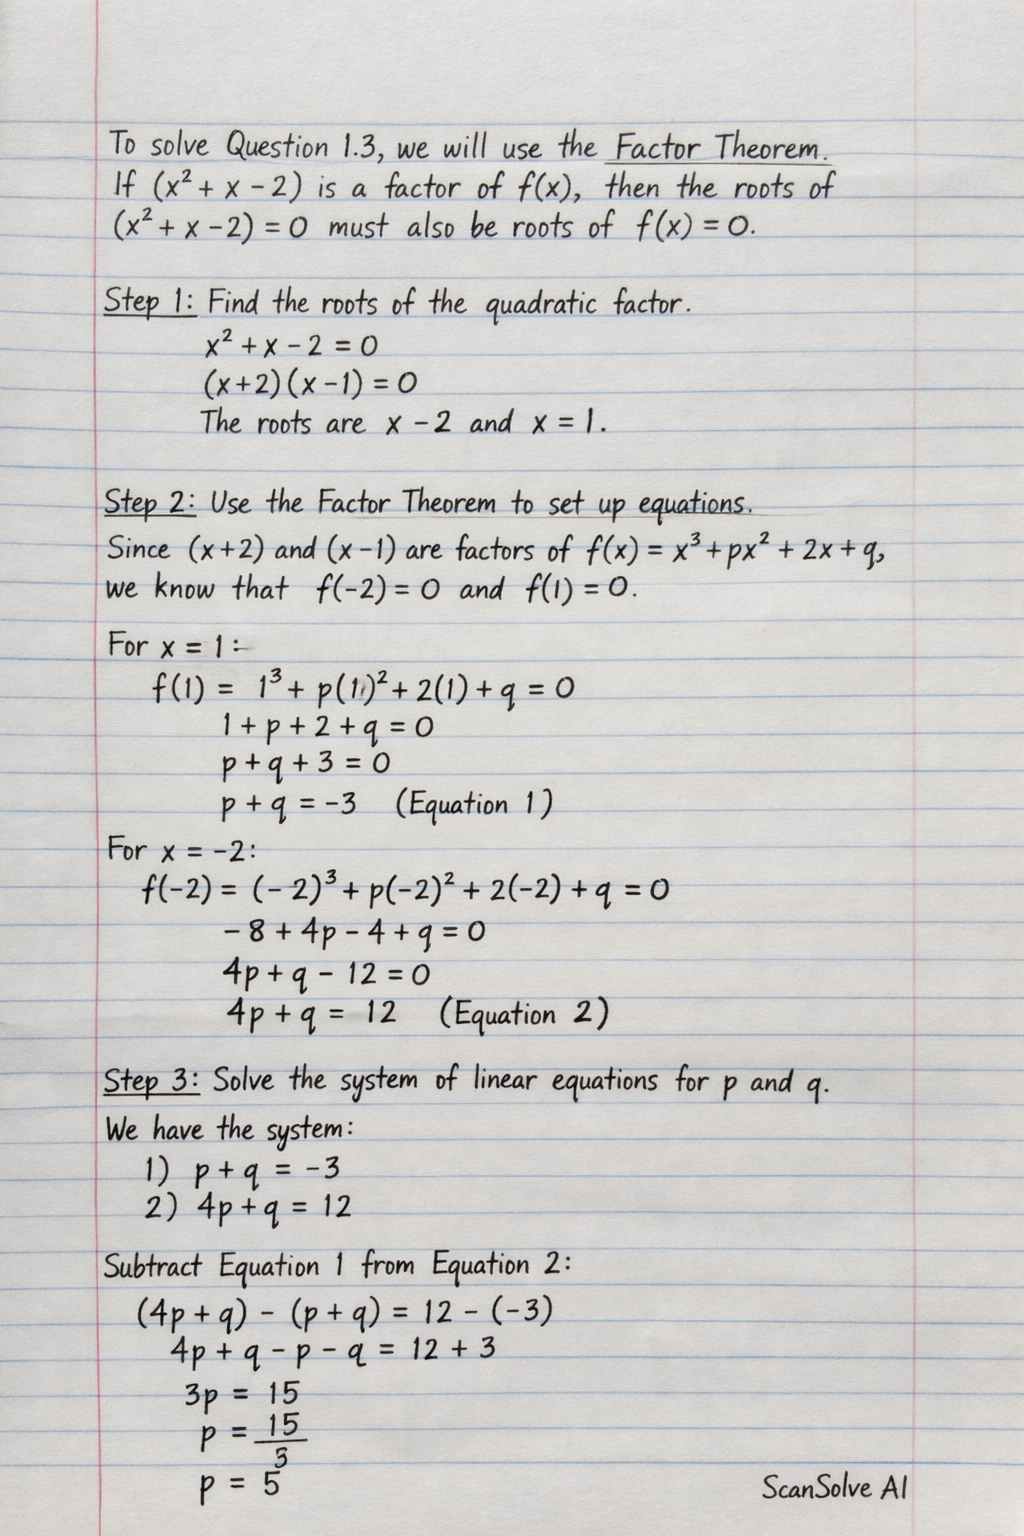 To solve Question 1.3, we will use the Factor Theorem.
If (x² + x - 2) is a factor of f(x), then the roots of
(x² + x - 2) = 0 must also be roots of f(x) = 0.
Step 1: Find the roots of the quadratic factor.
x² + x - 2 = 0
(x+2)(x-1) = 0
The roots are x - 2 and x = 1.
Step 2: Use the Factor Theorem to set up equations.
Since (x+2) and (x-1) are factors of f(x) = x³ + px² + 2x + q,
we know that f(-2) = 0 and f(1) = 0.
For x = 1:-
f(1) = 1³ + p(1)² + 2(1) + q = 0
1 + p + 2 + q = 0
p + q + 3 = 0
p + q = -3 (Equation 1)
For x = -2:
f(-2) = (-2)³ + p(-2)² + 2(-2) + q = 0
-8 + 4p - 4 + q = 0
4p + q - 12 = 0
4p + q = 12 (Equation 2)
Step 3: Solve the system of linear equations for p and q.
We have the system:
1) p + q = -3
2) 4p + q = 12
Subtract Equation 1 from Equation 2:
(4p + q) - (p + q) = 12 - (-3)
4p + q - p - q = 12 + 3
3p = 15
p = 15/3
p = 5
ScanSolve AI